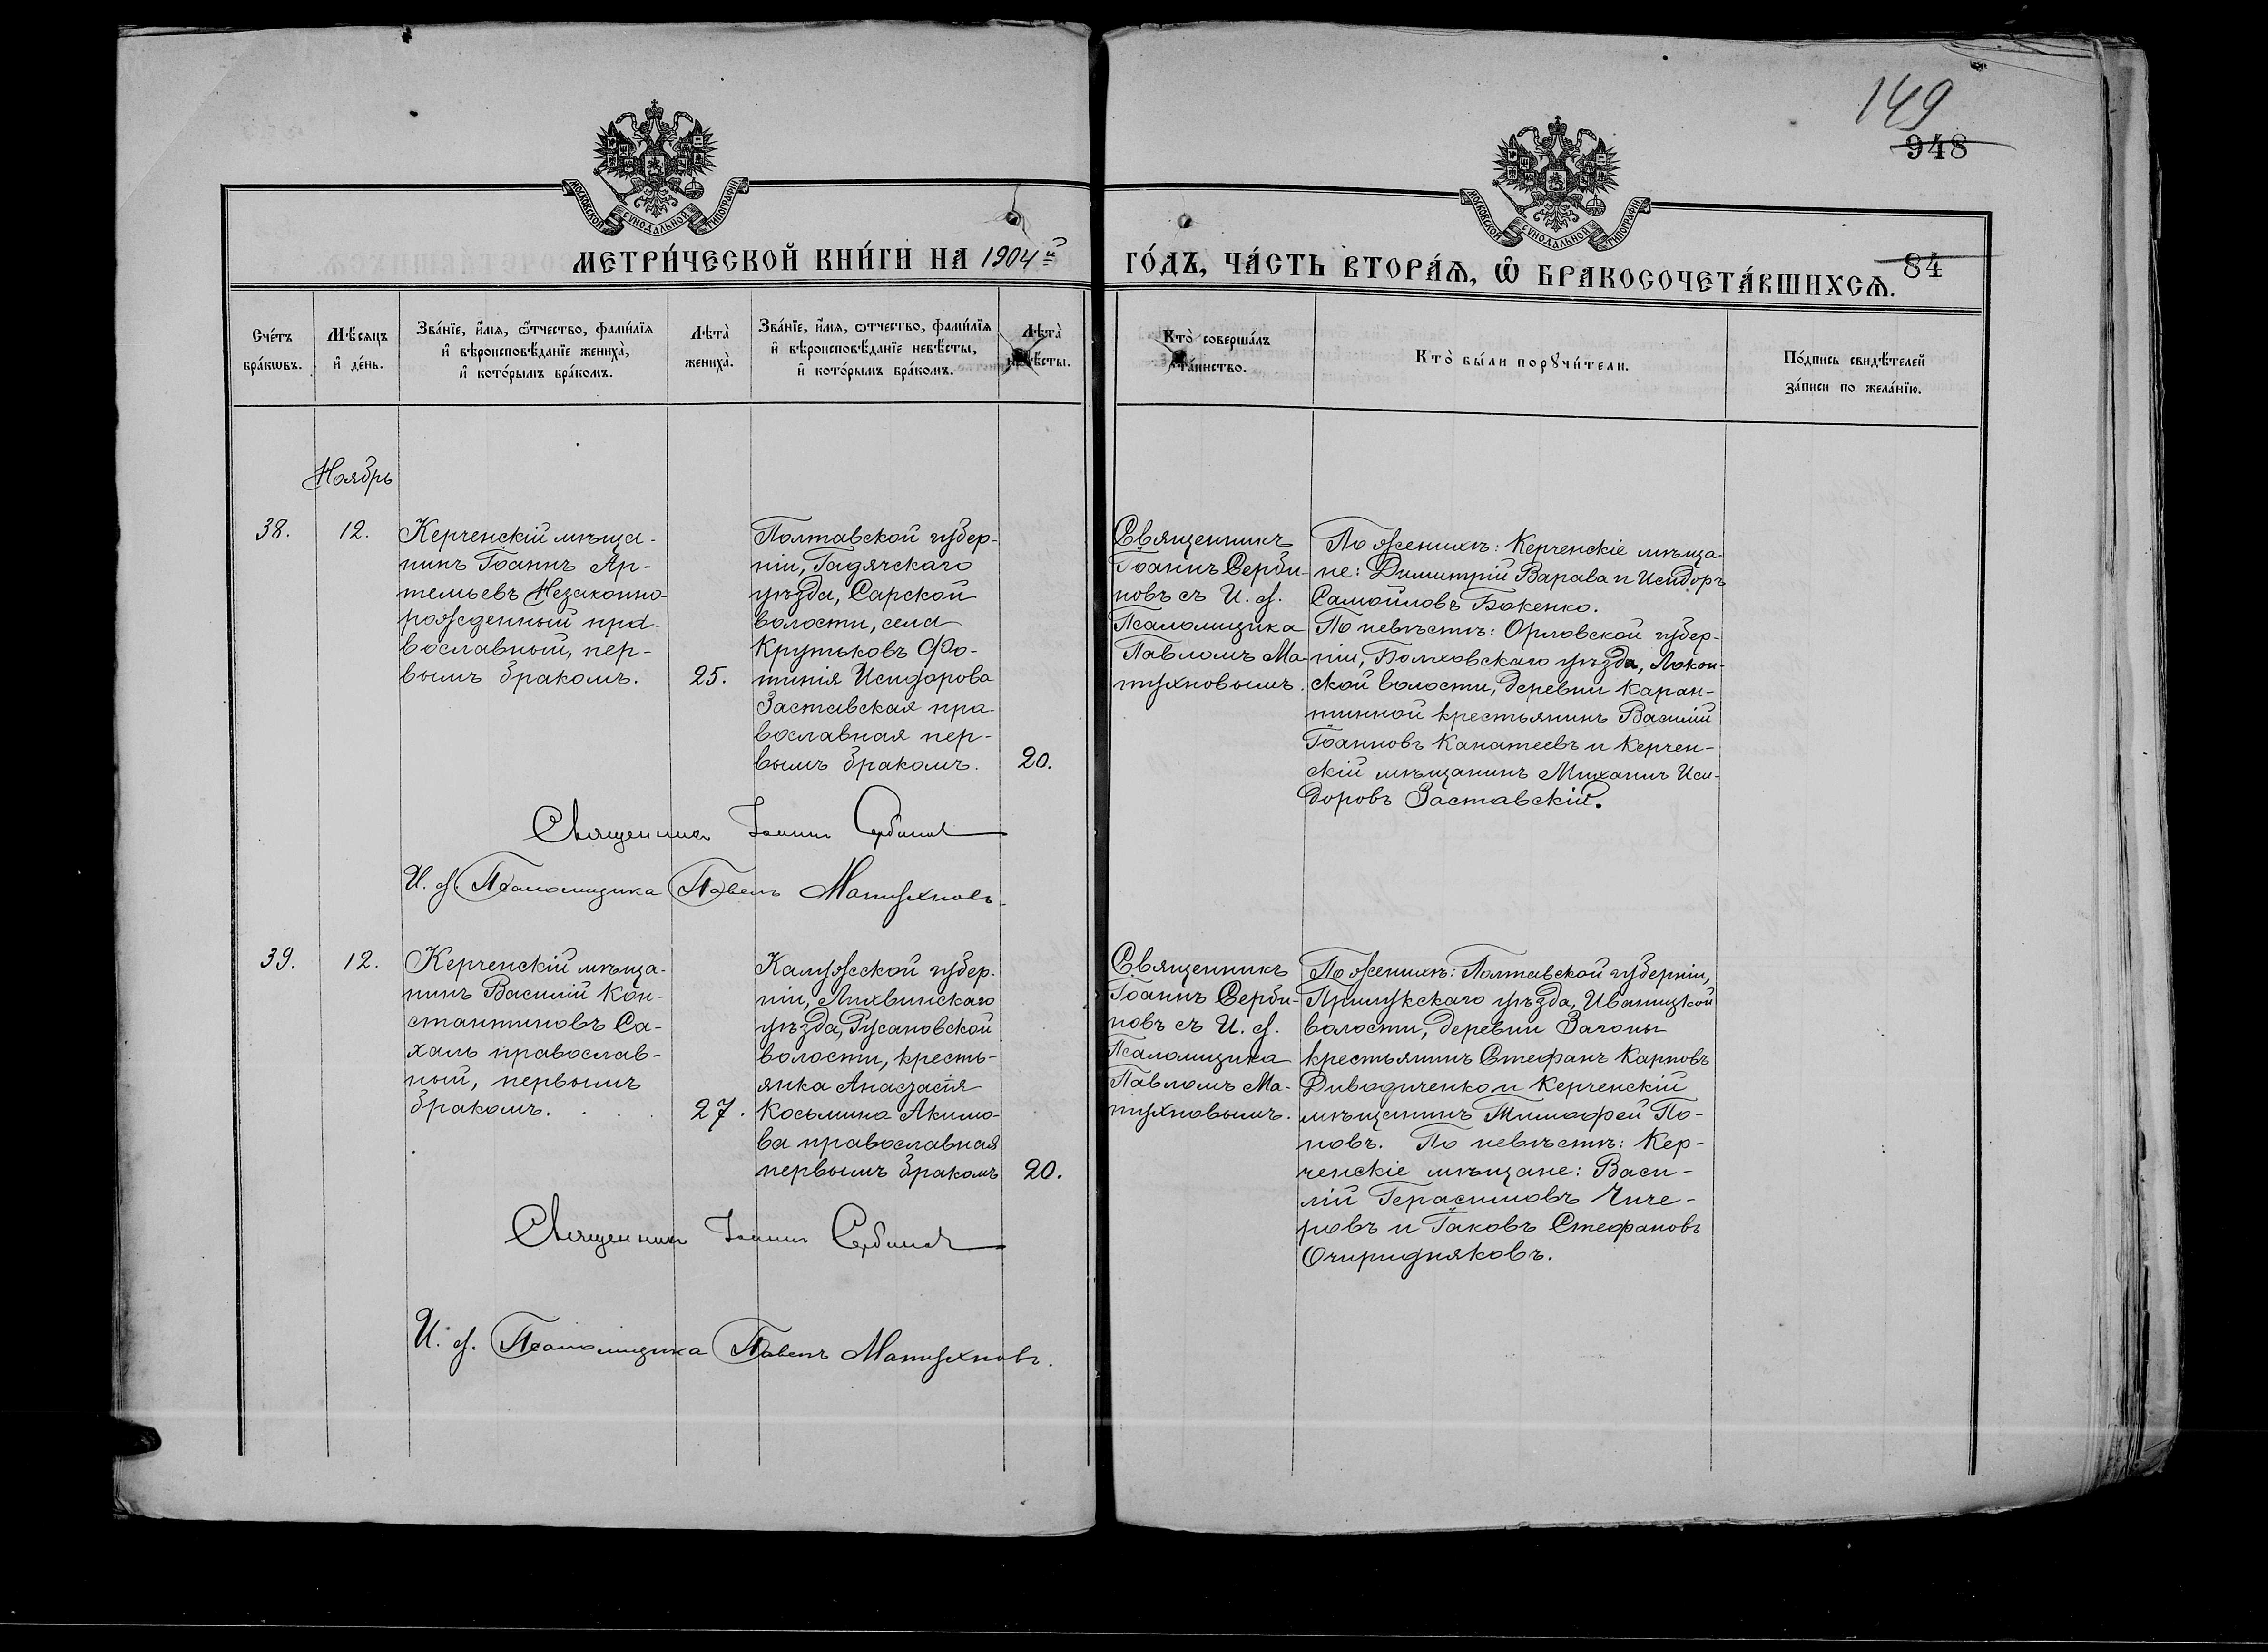 149
948
МОСКОВСКОЙ СУНОДАЛЬНОЙ ТИПОГРАФІИ
МОСКОВСКОЙ СУНОДАЛЬНОЙ ТИПОГРАФІИ
МЕТРИ́ЧЕСКОЙ КНИ́ГИ НА 1904й
ГО́ДЪ, ЧА́СТЬ ВТОРА́Ѧ, Ѽ БРАКОСОЧЕТА́ВШИХСѦ.
84
Сче́тъ
бра́кѡвъ.
Мѣ́сяцъ
и҆ де́нь.
Зва́нїе, и҆́мѧ, ѻ҆́тчество, фами́лїя
и҆ вѣроисповѣ́данїе жениха̀,
и҆ кото́рымъ бра́комъ.
Лѣта̀
жениха̀.
Зва́нїе, и҆́мѧ, ѻ҆́тчество, фами́лїя
и҆ вѣроисповѣ́данїе невѣ́сты,
и҆ кото́рымъ бра́комъ.
Лѣта̀
невѣ́сты.
Кто̀ соверша́лъ
та́инство.
Кто̀ бы́ли порꙋчи́тели.
По́дпись свидѣ́телей
за́писи по жела́нїю.
Ноябрь
38.
12.
Керченскій мѣща-
нинъ Іоаннъ Ар-
темьевъ Незаконно-
рожденный пра-
вославный, пер-
вымъ бракомъ.
25.
Полтавской губер-
ніи, Гадячскаго
уѣзда, Сарской
волости, села
Крутьковъ Фо-
тинія Исидорова
Заставская пра-
вославная пер-
вымъ бракомъ.
20.
Священникъ
Іоаннъ Серби-
новъ съ И. д.
Псаломщика
Павломъ Ма-
тухновымъ.
По женихѣ: Керченскіе мѣща-
не: Димитрій Варава и Исидоръ
Самойловъ Боженко.
По невѣстѣ: Орловской губер-
ніи, Болховскаго уѣзда, Локон-
ской волости, деревни Каран-
тинной крестьянинъ Василій
Іоанновъ Канатеевъ и Керчен-
скій мѣщанинъ Михаилъ Иси-
доровъ Заставскій.
Священникъ Іоаннъ Сербиновъ
И. д. Псаломщика Павелъ Матухновъ.
39.
12.
Керченскій мѣща-
нинъ Василій Кон-
стантиновъ Са-
халь православ-
ный, первымъ
бракомъ.
27.
Калужской губер-
ніи, Лихвинскаго
уѣзда, Русановской
волости, кресть-
янка Анастасія
Косьмина Акимо-
ва православная
первымъ бракомъ
20.
Священникъ
Іоаннъ Серби-
новъ съ И. д.
Псаломщика
Павломъ Ма-
тухновымъ.
По женихѣ: Полтавской губерніи,
Прилукскаго уѣзда, Иваницкой
волости, деревни Загоны
крестьянинъ Стефанъ Карповъ
Диводиченко и Керченскій
мѣщанинъ Тимофей По-
повъ. По невѣстѣ: Кер-
ченскіе мѣщане: Васи-
лій Герасимовъ Чиче-
ровъ и Іаковъ Стефановъ
Очиридняковъ.
Священникъ Іоаннъ Сербиновъ
И. д. Псаломщика Павелъ Матухновъ.